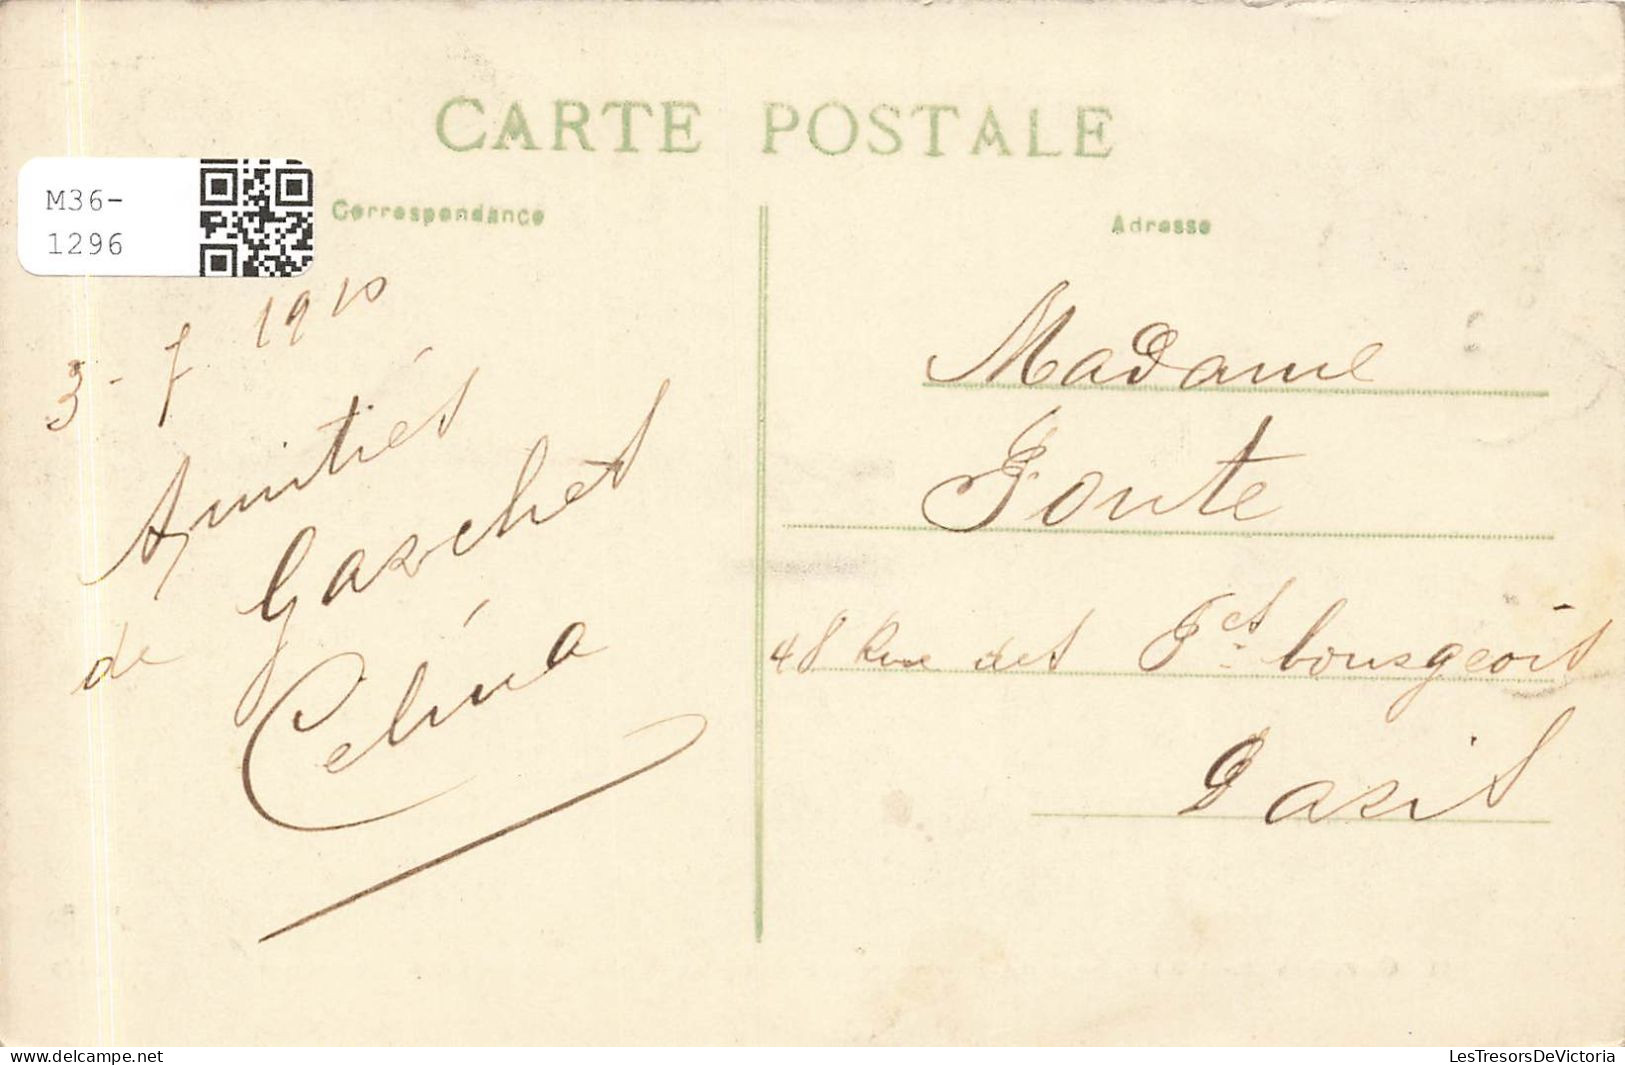 CARTE POSTALE
M36-
1296
Correspondance
Adresse
3-7 1910
Amitiés
de Gaschet
Celina
Madame
Foute
48 Rue des Fcs bourgeois
Paris
delcampe.net
LesTresorsDeVictoria